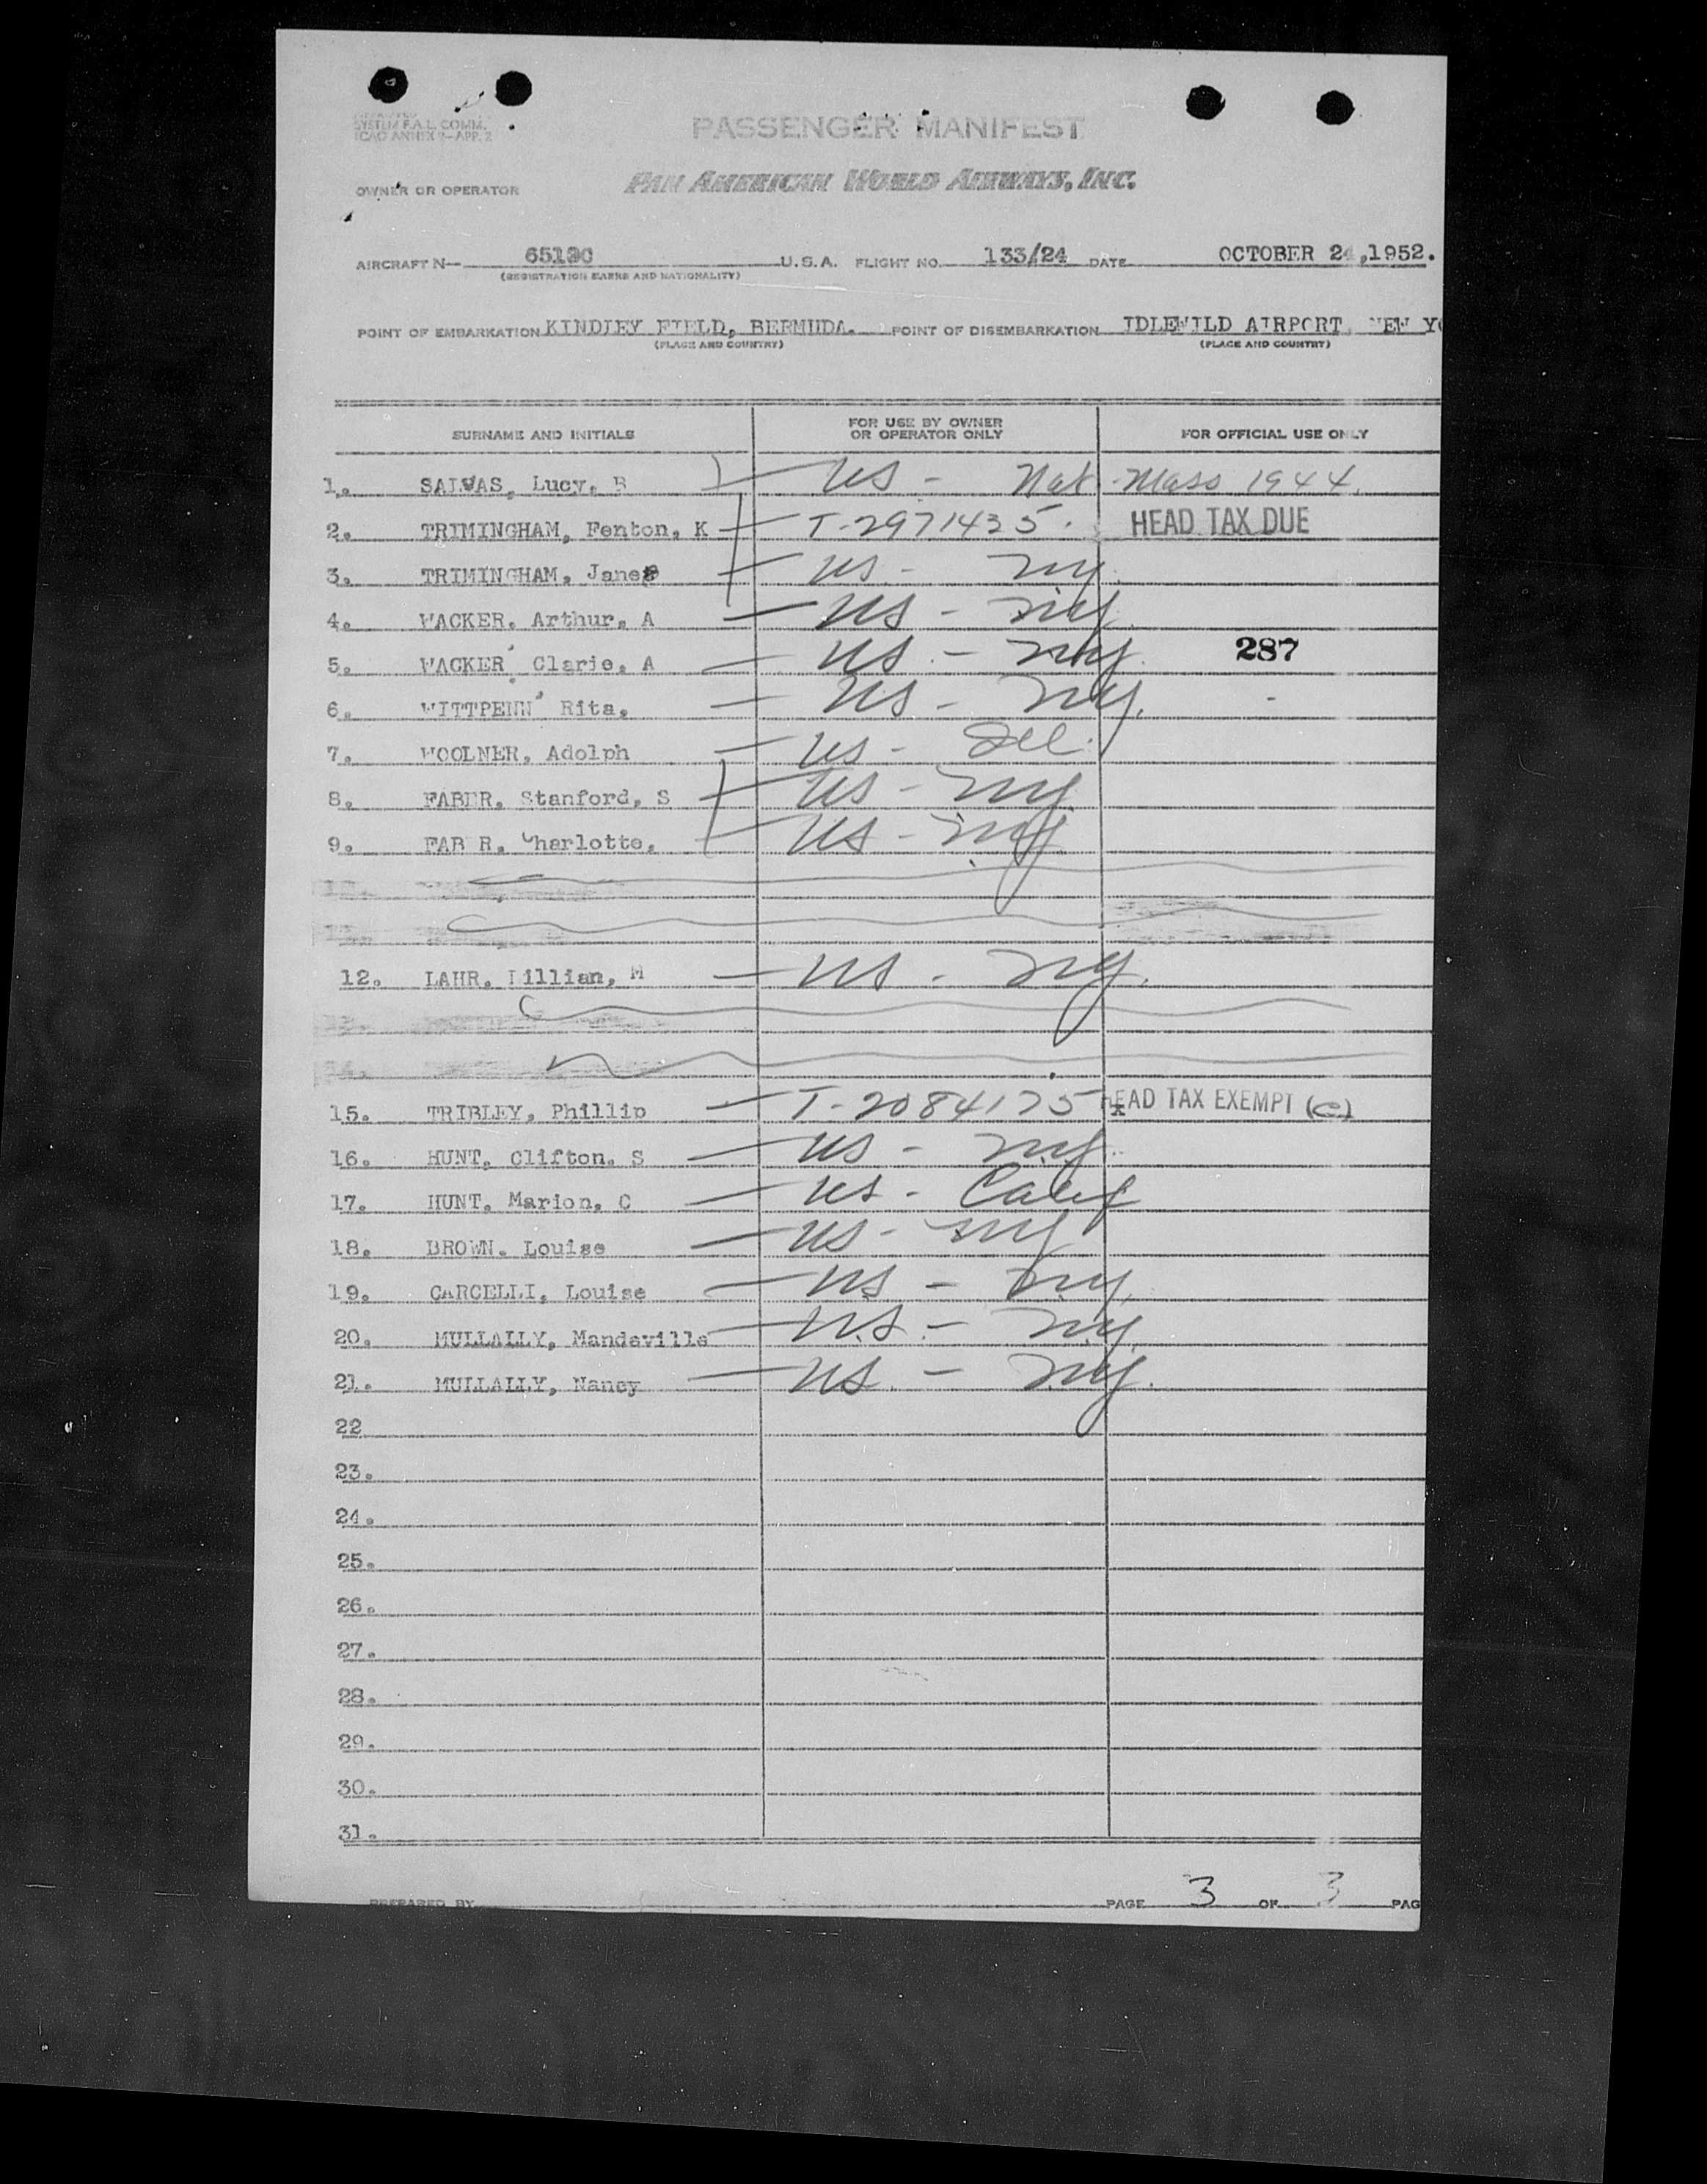 SYSTEM F.A.L. COMM.
ICAO ANNEX 9—APP. 2
PASSENGER MANIFEST
OWNER OR OPERATOR PAN AMERICAN WORLD AIRWAYS, INC.
AIRCRAFT N— U.S.A. FLIGHT NO. 133/24 DATE OCTOBER 24,1952.
(REGISTRATION MARKS AND NATIONALITY)
POINT OF EMBARKATION KINDLEY FIELD, BERMUDA. POINT OF DISEMBARKATION IDLEWILD AIRPORT, NEW YO
(PLACE AND COUNTRY) (PLACE AND COUNTRY)
SURNAME AND INITIALS FOR USE BY OWNER OR OPERATOR ONLY FOR OFFICIAL USE ONLY
1. SALVAS, Lucy, B US - Nat. Mass 1944.
2. TRIMINGHAM, Fenton, K T-2971435. HEAD TAX DUE
3. TRIMINGHAM, Jane US - NY.
4. WACKER. Arthur, A US - NY.
5. WACKER Clarie, A US - NY. 287
6. WITTPENN Rita, US - NY.
7. WOOLNER, Adolph US - Ill.
8. FABER. Stanford, S US - NY.
9. FAB R. Charlotte, US - NY.
12. LAHR. Lillian, M US - NY.
15. TRIBLEY, Phillip T-2084175 HEAD TAX EXEMPT (c)
16. HUNT. Clifton. S US - NY.
17. HUNT. Marion, C US - Calif
18. BROWN. Louise US - NY
19. CARCELLI, Louise US - NY.
20. MULLALLY, Mandeville US - NY.
21. MULLALLY, Nancy US. - NY.
22
23.
24.
25.
26.
27.
28.
29.
30.
31.
PREPARED BY PAGE 3 OF 3 PAG